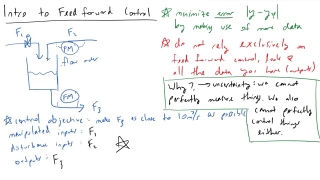 Intro to Feedforward Control
F₁
F₂
FM
flow meter
FM
F₃
control objective: make F₃ as close to 10 m³/s as possible
manipulated inputs: F₁
disturbance inputs: F₂
outputs: F₃
minimize error |y-yₛₚ|
by making use of more data
do not rely exclusively on
feed forward control, look @
all the data you have (outputs)
Why? → uncertainty: we cannot
perfectly measure things. We also
cannot perfectly
control things
either.